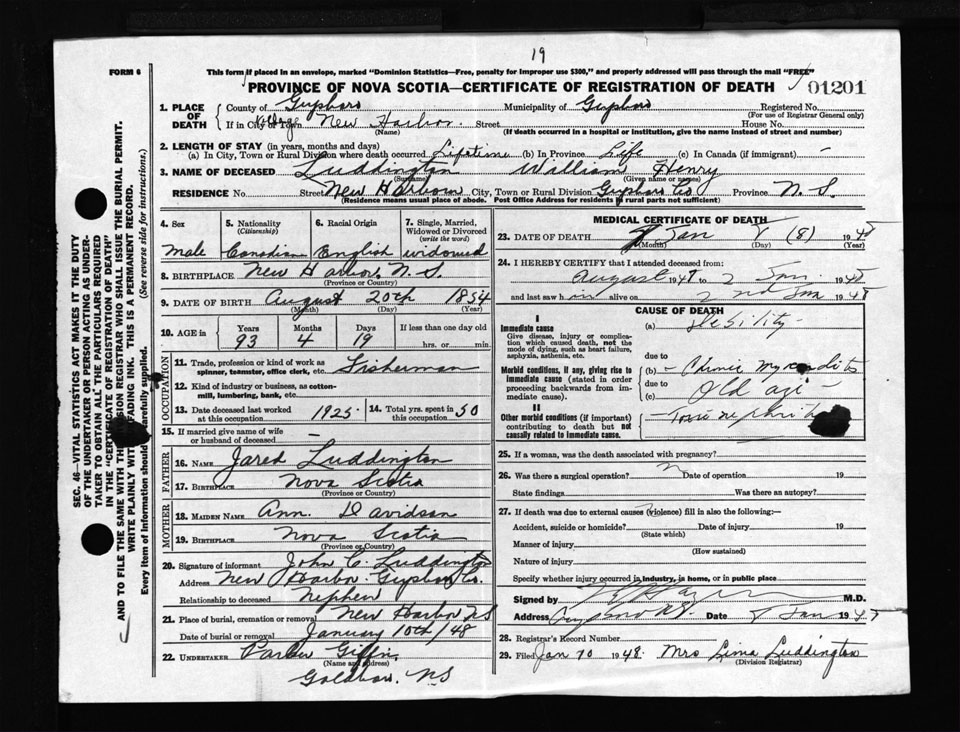 19
FORM 6
This form if placed in an envelope, marked "Dominion Statistics—Free, penalty for improper use $300," and properly addressed will pass through the mail "FREE"
PROVINCE OF NOVA SCOTIA—CERTIFICATE OF REGISTRATION OF DEATH
01201
1. PLACE OF DEATH County of Guysboro Municipality of Guysboro Registered No.
(For use of Registrar General only)
If in City or Town Village New Harbor. Street House No.
(Name) (If death occurred in a hospital or institution, give the name instead of street and number)
2. LENGTH OF STAY (in years, months and days)
(a) In City, Town or Rural Division where death occurred Lifetime (b) In Province Life (c) In Canada (if immigrant) —
3. NAME OF DECEASED Luddington William Henry
(Surname) (Given name or names)
RESIDENCE No Street New Harbour City, Town or Rural Division Guysboro Co Province N. S.
(Residence means usual place of abode. Post Office Address for residents in rural parts not sufficient)
4. Sex
male
5. Nationality
(Citizenship)
Canadian
6. Racial Origin
English
7. Single, Married, Widowed or Divorced
(write the word)
widowed
8. BIRTHPLACE New Harbor, N. S.
(Province or Country)
9. DATE OF BIRTH August 20th 1854
(Month) (Day) (Year)
10. AGE in Years Months Days If less than one day old
93 4 19 hrs. or min.
OCCUPATION
11. Trade, profession or kind of work as spinner, teamster, office clerk, etc. Fisherman
12. Kind of industry or business, as cotton-mill, lumbering, bank, etc.
13. Date deceased last worked at this occupation 1925 14. Total yrs. spent in this occupation 50
15. If married give name of wife or husband of deceased —
FATHER
16. NAME Jared Luddington
17. BIRTHPLACE Nova Scotia
(Province or Country)
MOTHER
18. MAIDEN NAME Ann. Davidson
19. BIRTHPLACE Nova Scotia
(Province or Country)
20. Signature of informant John C. Luddington
Address New Harbor Guysboro Co.
Relationship to deceased Nephew
21. Place of burial, cremation or removal New Harbor NS
Date of burial or removal January 10th/48
22. UNDERTAKER Parker Giffin,
(Name and address)
Goldboro. NS
MEDICAL CERTIFICATE OF DEATH
23. DATE OF DEATH Jan 8 (8) 1948
(Month) (Day) (Year)
24. I HEREBY CERTIFY that I attended deceased from:
August 1947 to 2 Jan. 1948
and last saw him alive on 2nd Jan 1948
CAUSE OF DEATH
I
Immediate cause
Give disease, injury or complication which caused death, not the mode of dying, such as heart failure, asphyxia, asthenia, etc.
(a) Debility —
due to
Morbid conditions, if any, giving rise to immediate cause (stated in order proceeding backwards from immediate cause).
(b) — Chronic Myocarditis
due to
(c) Old age —
II
Other morbid conditions (if important) contributing to death but not causally related to immediate cause.
Toxic nephritis
25. If a woman, was the death associated with pregnancy?
26. Was there a surgical operation? Date of operation 19
State findings Was there an autopsy?
27. If death was due to external causes (violence) fill in also the following:—
Accident, suicide or homicide? Date of injury 19
(State which)
Manner of injury
(How sustained)
Nature of injury
Specify whether injury occurred in industry, in home, or in public place
Signed by M.D.
Address Date Jan 194
28. Registrar's Record Number
29. Filed Jan 10 1948. Mrs Lima Luddington
(Division Registrar)
SEC. 46—VITAL STATISTICS ACT MAKES IT THE DUTY
OF THE UNDERTAKER OR PERSON ACTING AS UNDER-
TAKER TO OBTAIN ALL THE PARTICULARS REQUIRED
IN THE "CERTIFICATE OF REGISTRATION OF DEATH"
AND TO FILE THE SAME WITH THE DIVISION REGISTRAR WHO SHALL ISSUE THE BURIAL PERMIT.
WRITE PLAINLY WITH UNFADING INK. THIS IS A PERMANENT RECORD.
Every item of information should be carefully supplied. (See reverse side for instructions.)